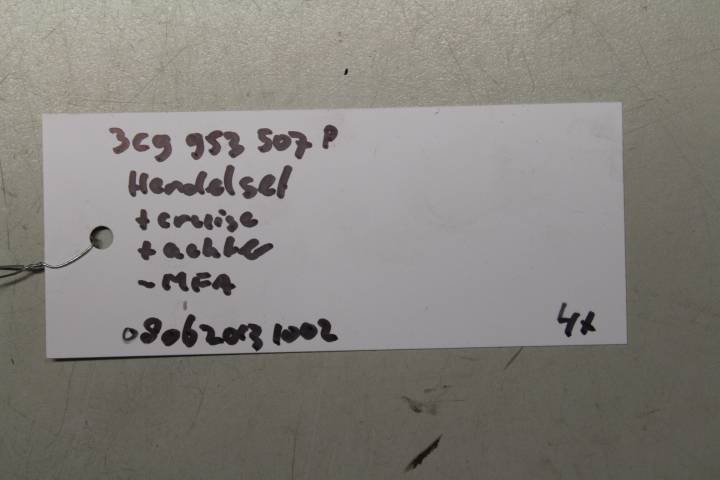 3C9 953 507 P
Hendelset
+ cruise
+ achter
- MFA
080620131002
4x